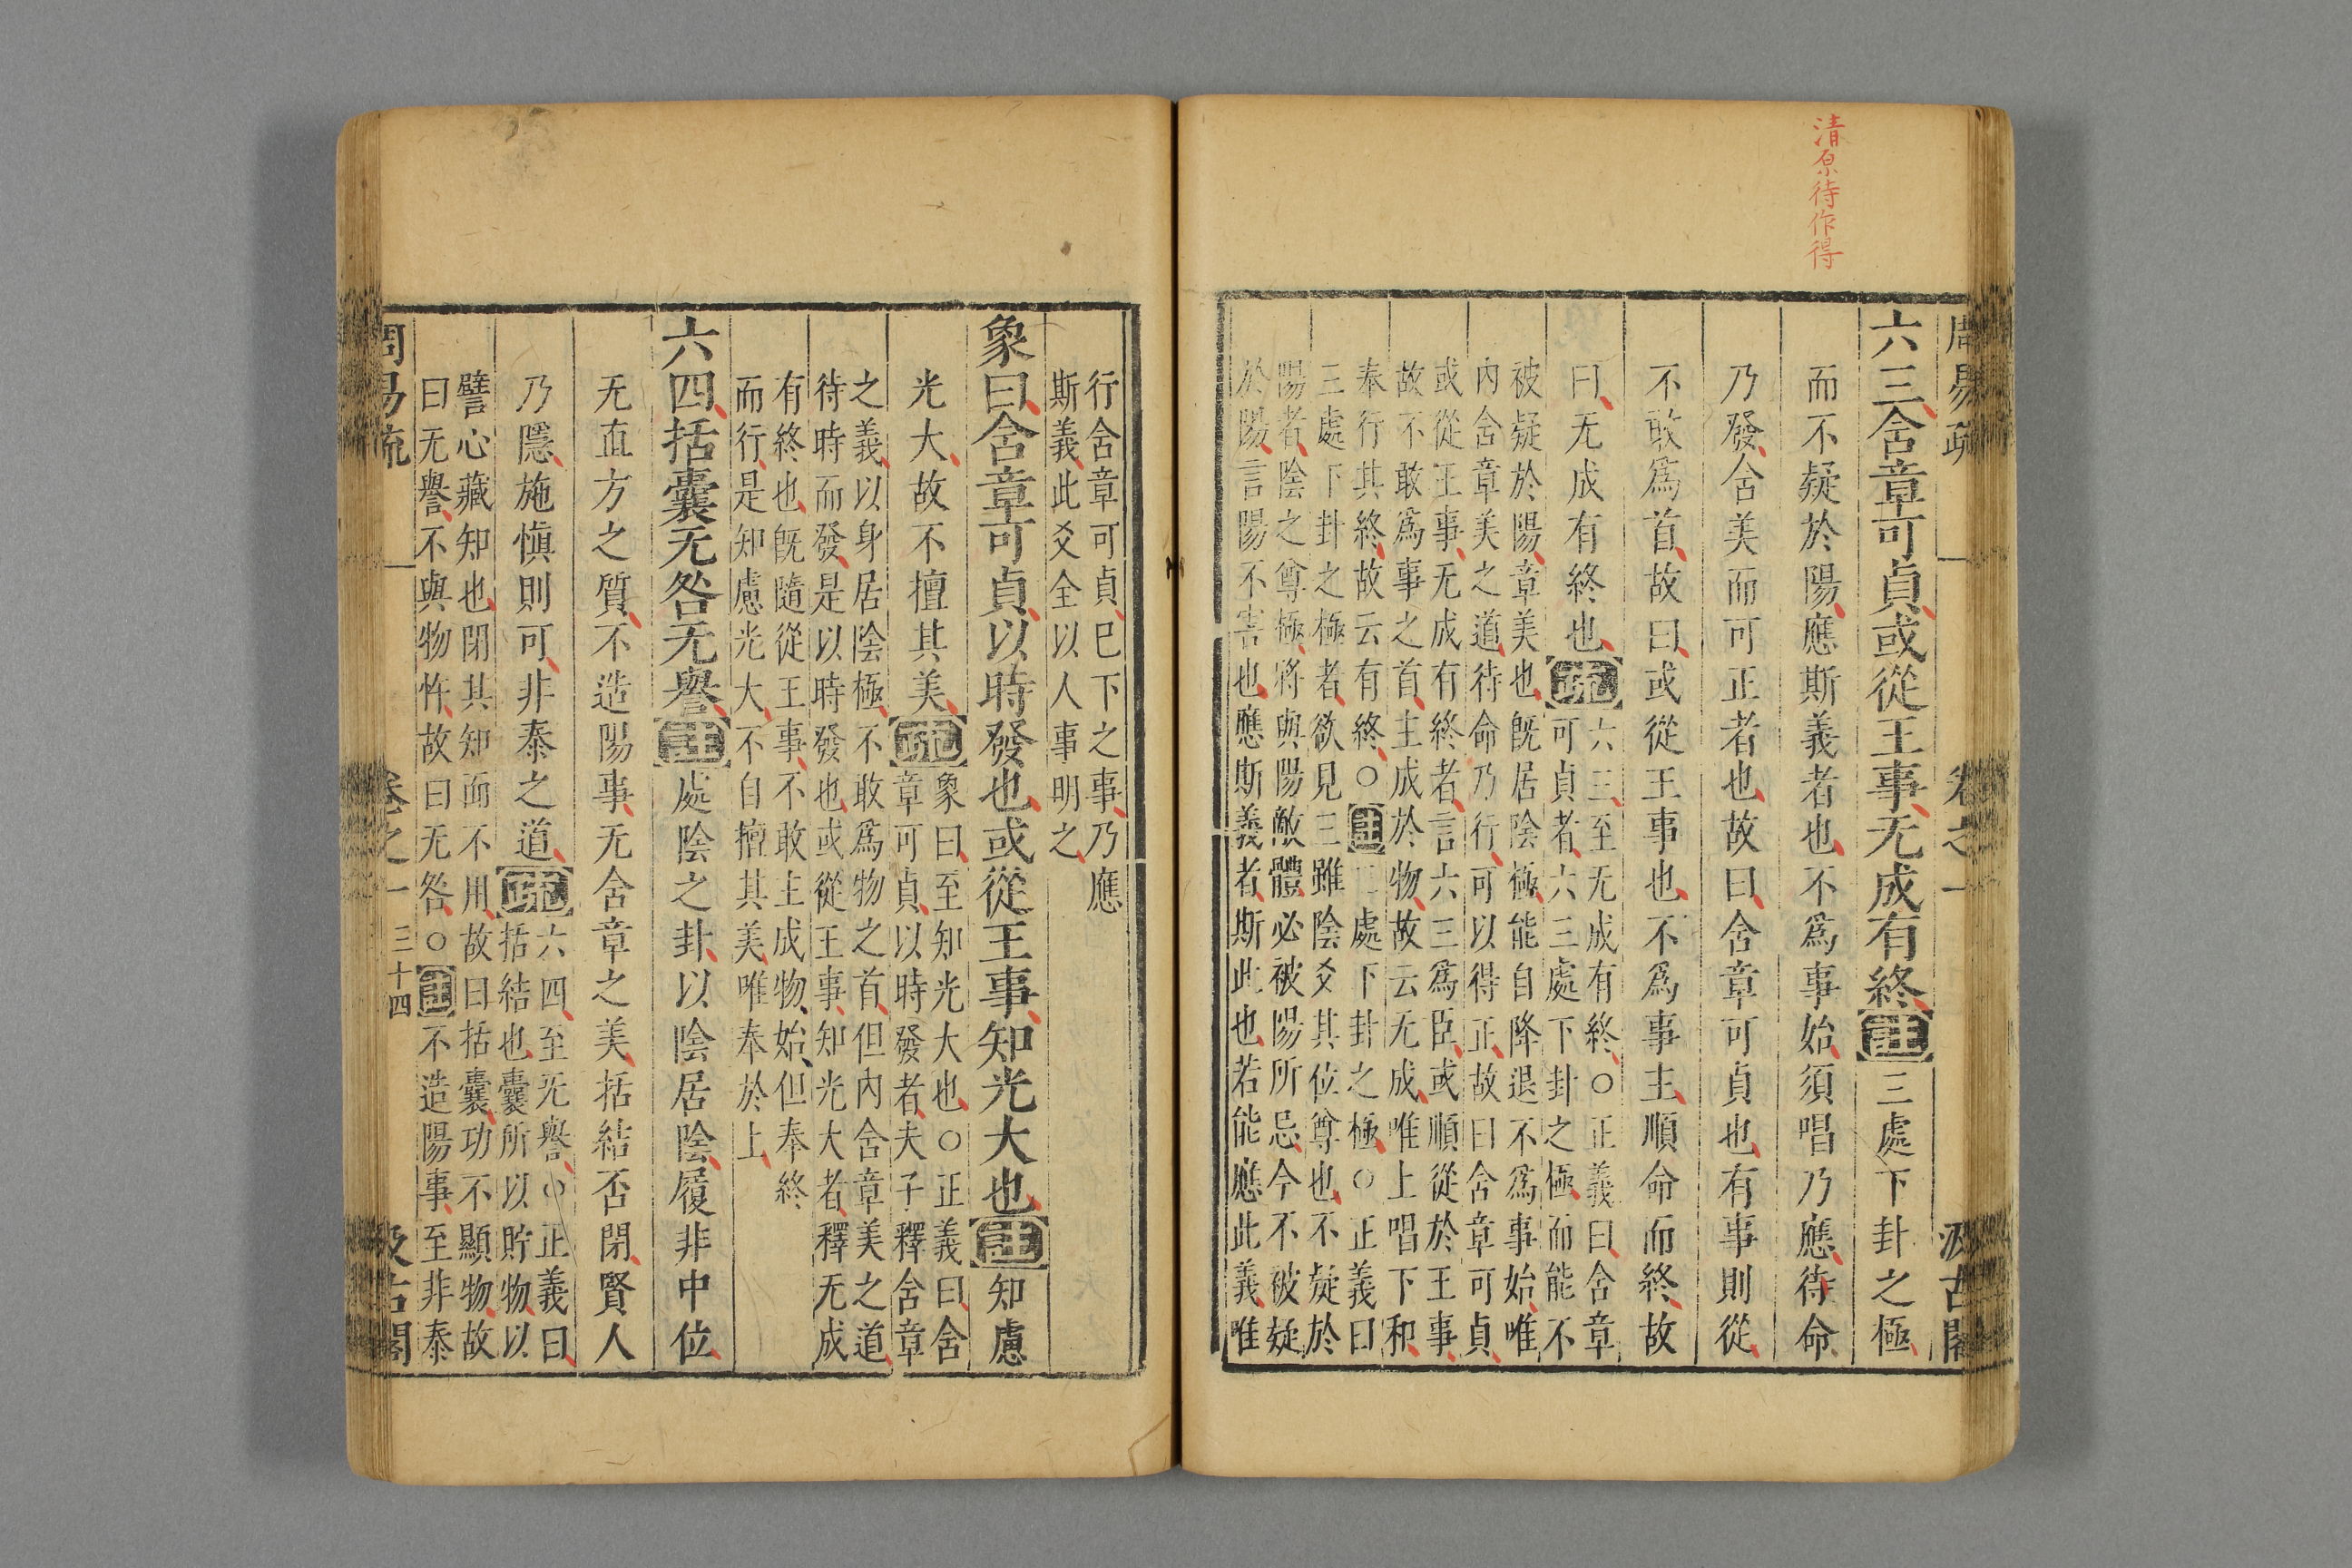 清原待作得
周易疏 卷之一 汲古閣
六三含章可貞或從王事无成有終註三處下卦之極
而不疑於陽應斯義者也不爲事始須唱乃應待命
乃發含美而可正者也故曰含章可貞也有事則從
不敢爲首故曰或從王事也不爲事主順命而終故
曰无成有終也疏
六三至无成有終○正義曰含章
可貞者六三處下卦之極而能不
被疑於陽章美也旣居陰極能自降退不爲事始唯
內含章美之道待命乃行可以得正故曰含章可貞
或從王事无成有終者言六三爲臣或順從於王事
故不敢爲事之首主成於物故云无成唯上唱下和
奉行其終故云有終○註三處下卦之極○正義曰
三處下卦之極者欲見三雖陰爻其位尊也不疑於
陽者陰之尊極將與陽敵體必被陽所忌今不被疑
於陽言陽不害也應斯義者斯此也若能應此義唯
行含章可貞已下之事乃應
斯義此爻全以人事明之
象曰含章可貞以時發也或從王事知光大也註知慮
光大故不擅其美疏
象曰至知光大也○正義曰含
章可貞以時發者夫子釋含章
之義以身居陰極不敢爲物之首但內含章美之道
待時而發是以時發也或從王事知光大者釋无成
有終也旣隨從王事不敢主成物始但奉終
而行是知慮光大不自擅其美唯奉於上
六四括囊无咎无譽註處陰之卦以陰居陰履非中位
无直方之質不造陽事无含章之美括結否閉賢人
乃隱施愼則可非泰之道疏
六四至无譽○正義曰
括結也囊所以貯物以
譬心藏知也閉其知而不用故曰括囊功不顯物故
曰无譽不與物忤故曰无咎○註不造陽事至非泰
周易疏 卷之一 三十四 汲古閣